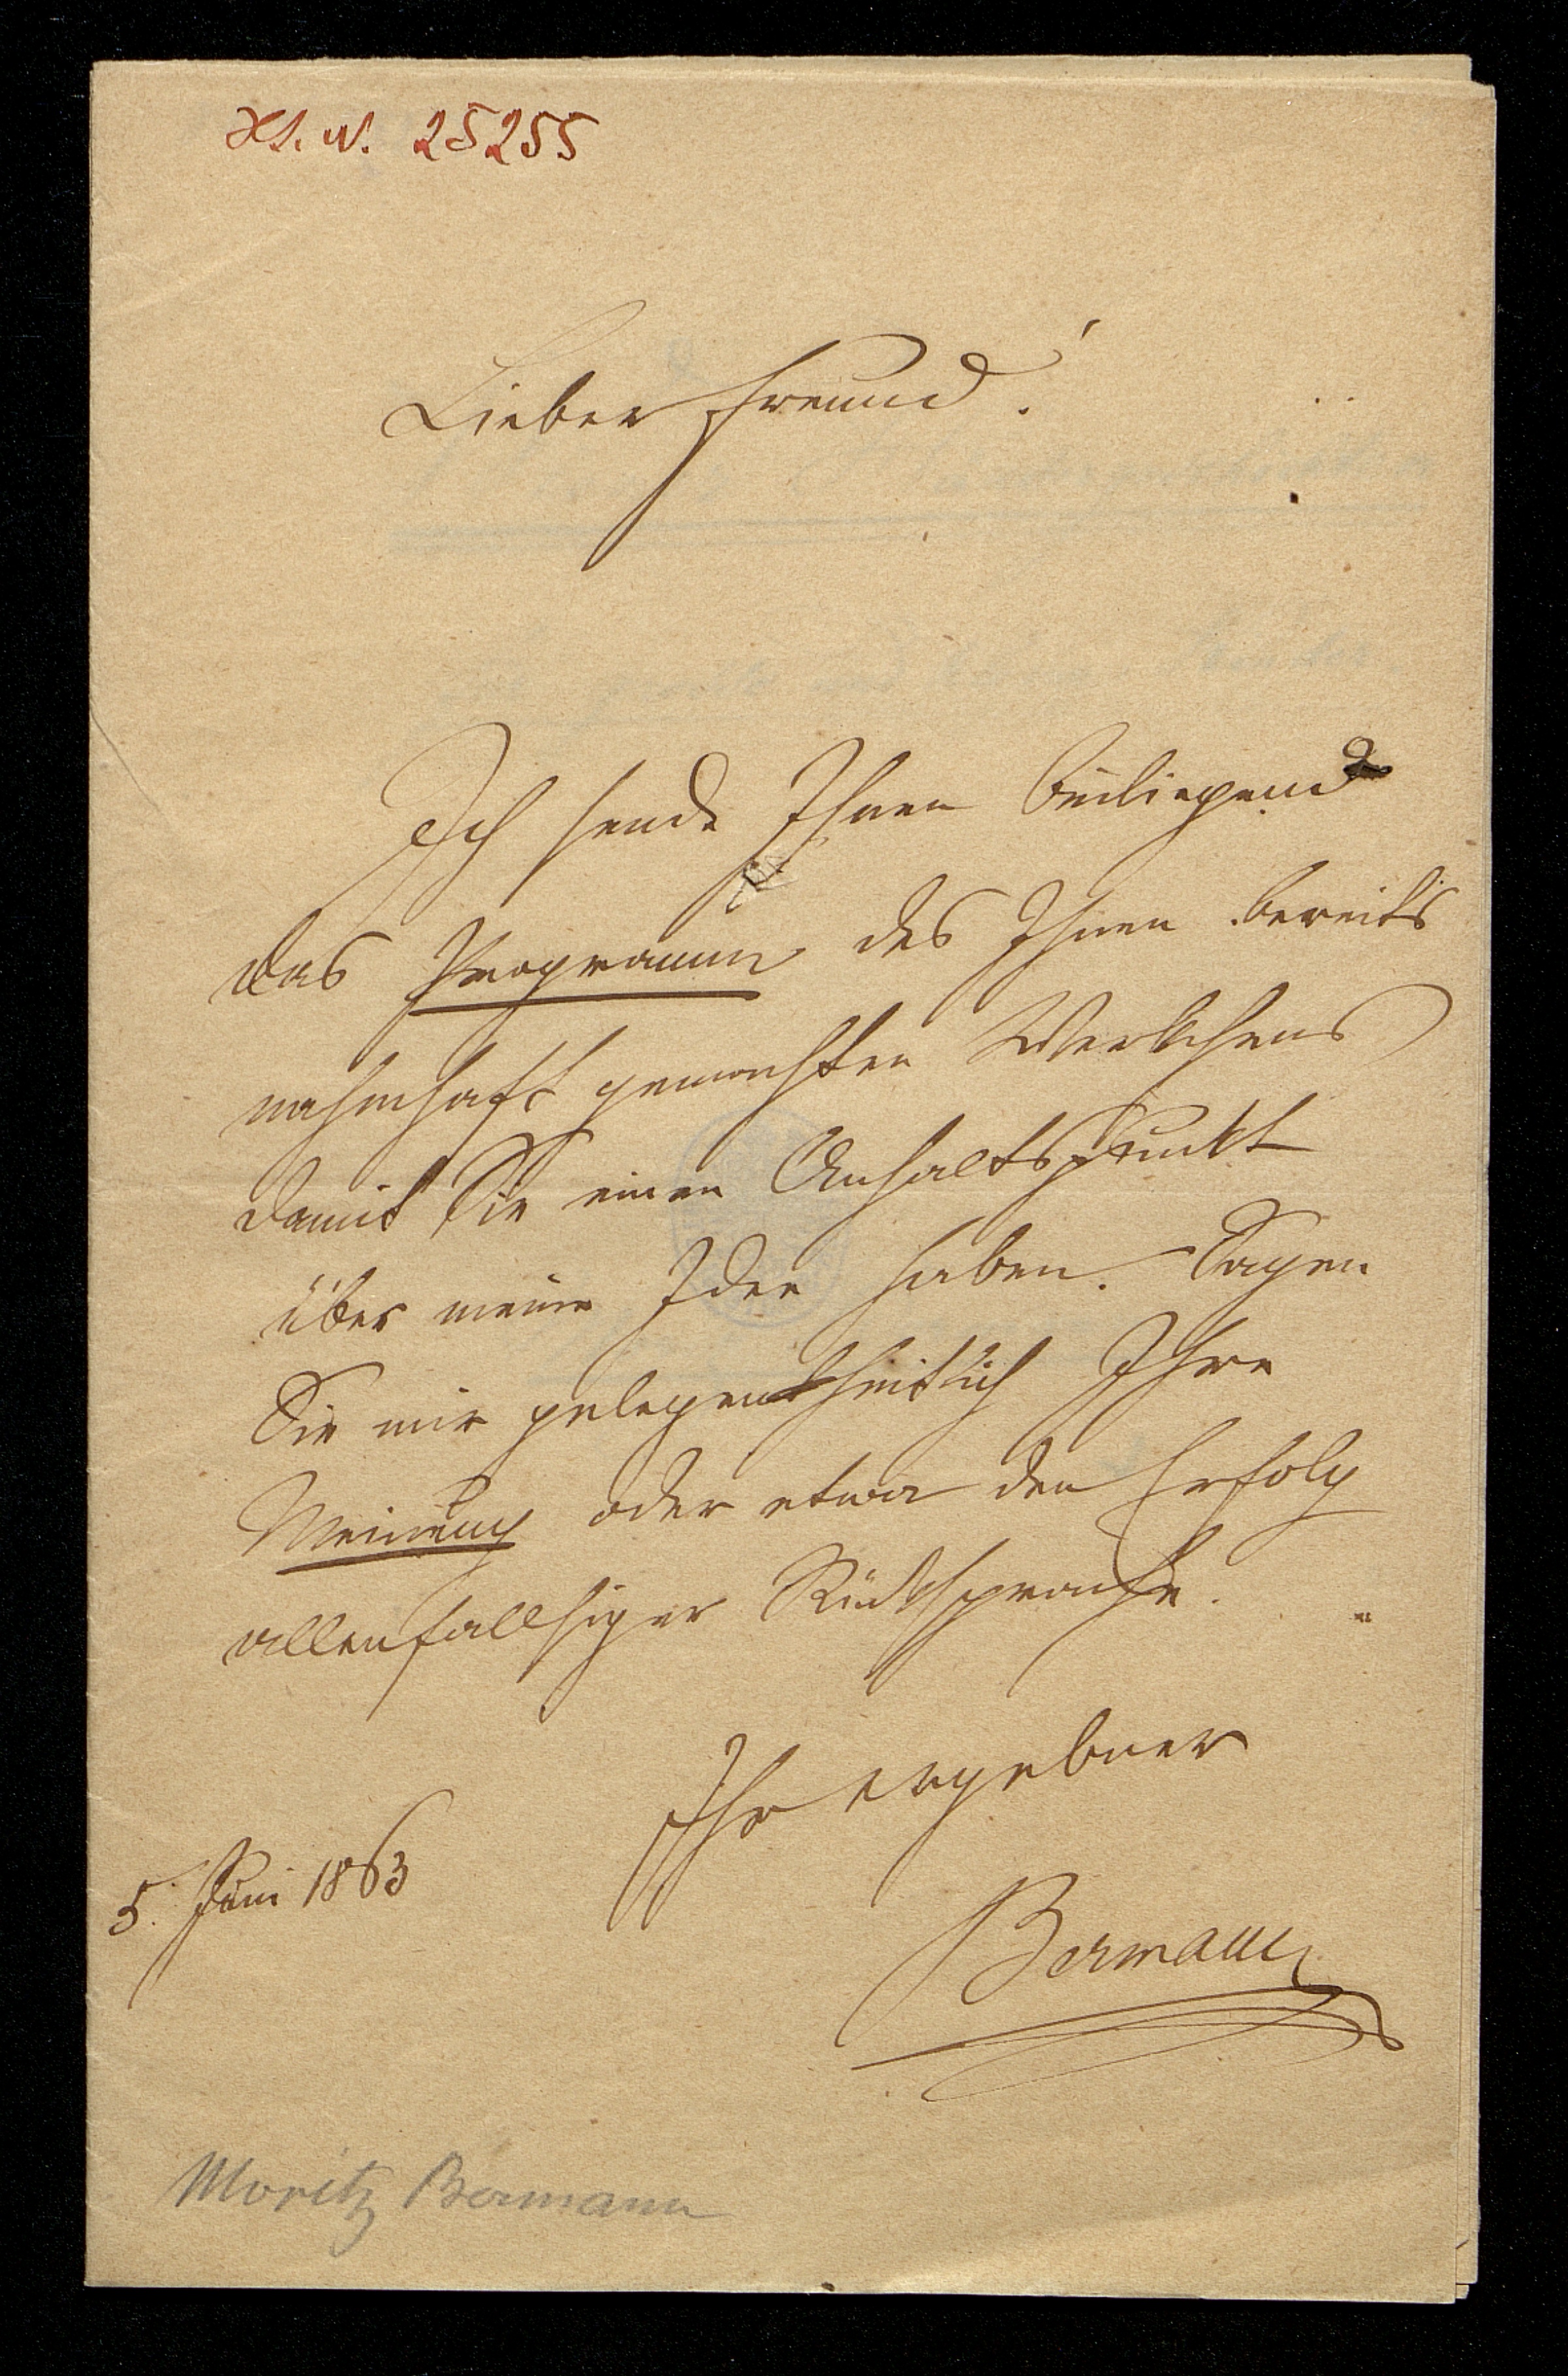 H.I.N. 25255
Lieber Freund!
Ich sende Ihnen beiliegend
das Programm des Ihnen bereits
nahmhaft gemachten Werkchens
damit Sie einen Anhaltspunkt
über meine Idee haben. Sagen
Sie mir gelegentheitlich Ihre
Meinung oder etwa den Erfolg
allenfallsiger Rücksprache.
Ihr ergebner
5. Juni 1863
Bermann
Moritz Bermann